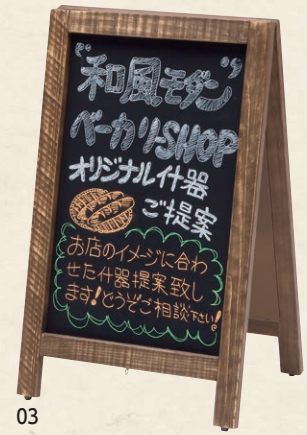 "和風モダン"
ベーカリーSHOP
オリジナル什器
ご提案
お店のイメージに合わ
せた什器提案致し
ます!どうぞご相談下さい!
03